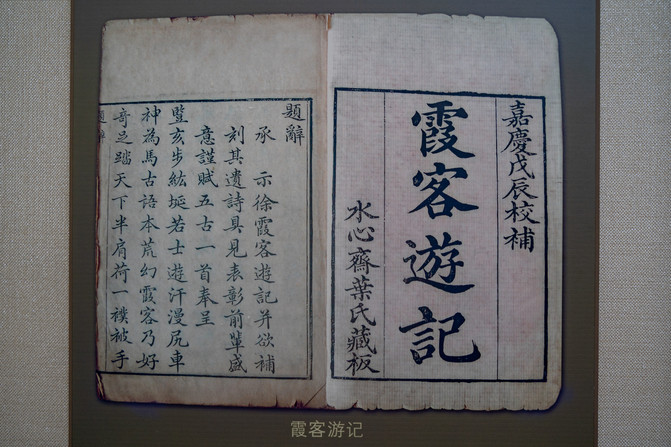 嘉慶戊辰校補
霞客遊記
水心齋葉氏藏板
題辭
承　示徐霞客遊記并欲補
刻其遺詩具見表彰前輩盛
意謹賦五古一首奉呈
豎亥步紘埏若士遊汗漫尻車
神為馬古語本荒幻霞客乃好
奇足踏天下半肩荷一襆被手
霞客游记